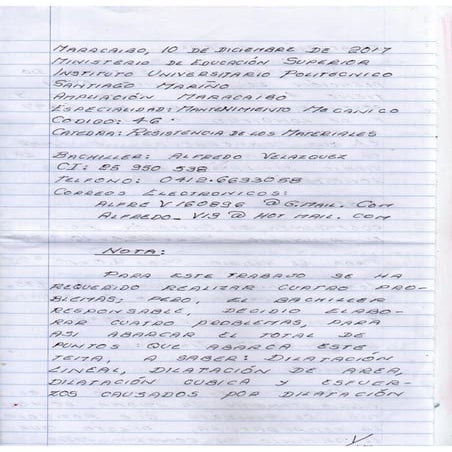 MARACAIBO, 10 DE DICIEMBRE DE 2017
MINISTERIO DE EDUCACIÓN SUPERIOR
INSTITUTO UNIVERSITARIO POLITECNICO
SANTIAGO MARIÑO
AMPLIACIÓN MARACAIBO
ESPECIALIDAD: MANTENIMIENTO MECANICO
CODIGO: 46.
CATEDRA: RESISTENCIA DE LOS MATERIALES
BACHILLER: ALFREDO VELAZQUEZ
CI: 25 950 538
TELFONO: 0412-6693058
CORREOS ELECTRONICOS:
ALFREV160896 @ GMAIL. COM
ALFREDO_V19 @ HOT MAIL. COM
NOTA:
PARA ESTE TRABAJO SE HA
REQUERIDO REALIZAR CUATRO PRO-
BLEMAS; PERO, EL BACHILLER
RESPONSABLE, DECIDIO ELABO-
RAR CUATRO PROBLEMAS, PARA
ASI ABARCAR EL TOTAL DE
PUNTOS QUE ABARCA ESTE
TEMA, A SABER: DILATACIÓN
LINEAL, DILATACIÓN DE AREA,
DILATACIÓN CUBICA Y ESFUER-
ZOS CAUSADOS POR DILATACIÓN